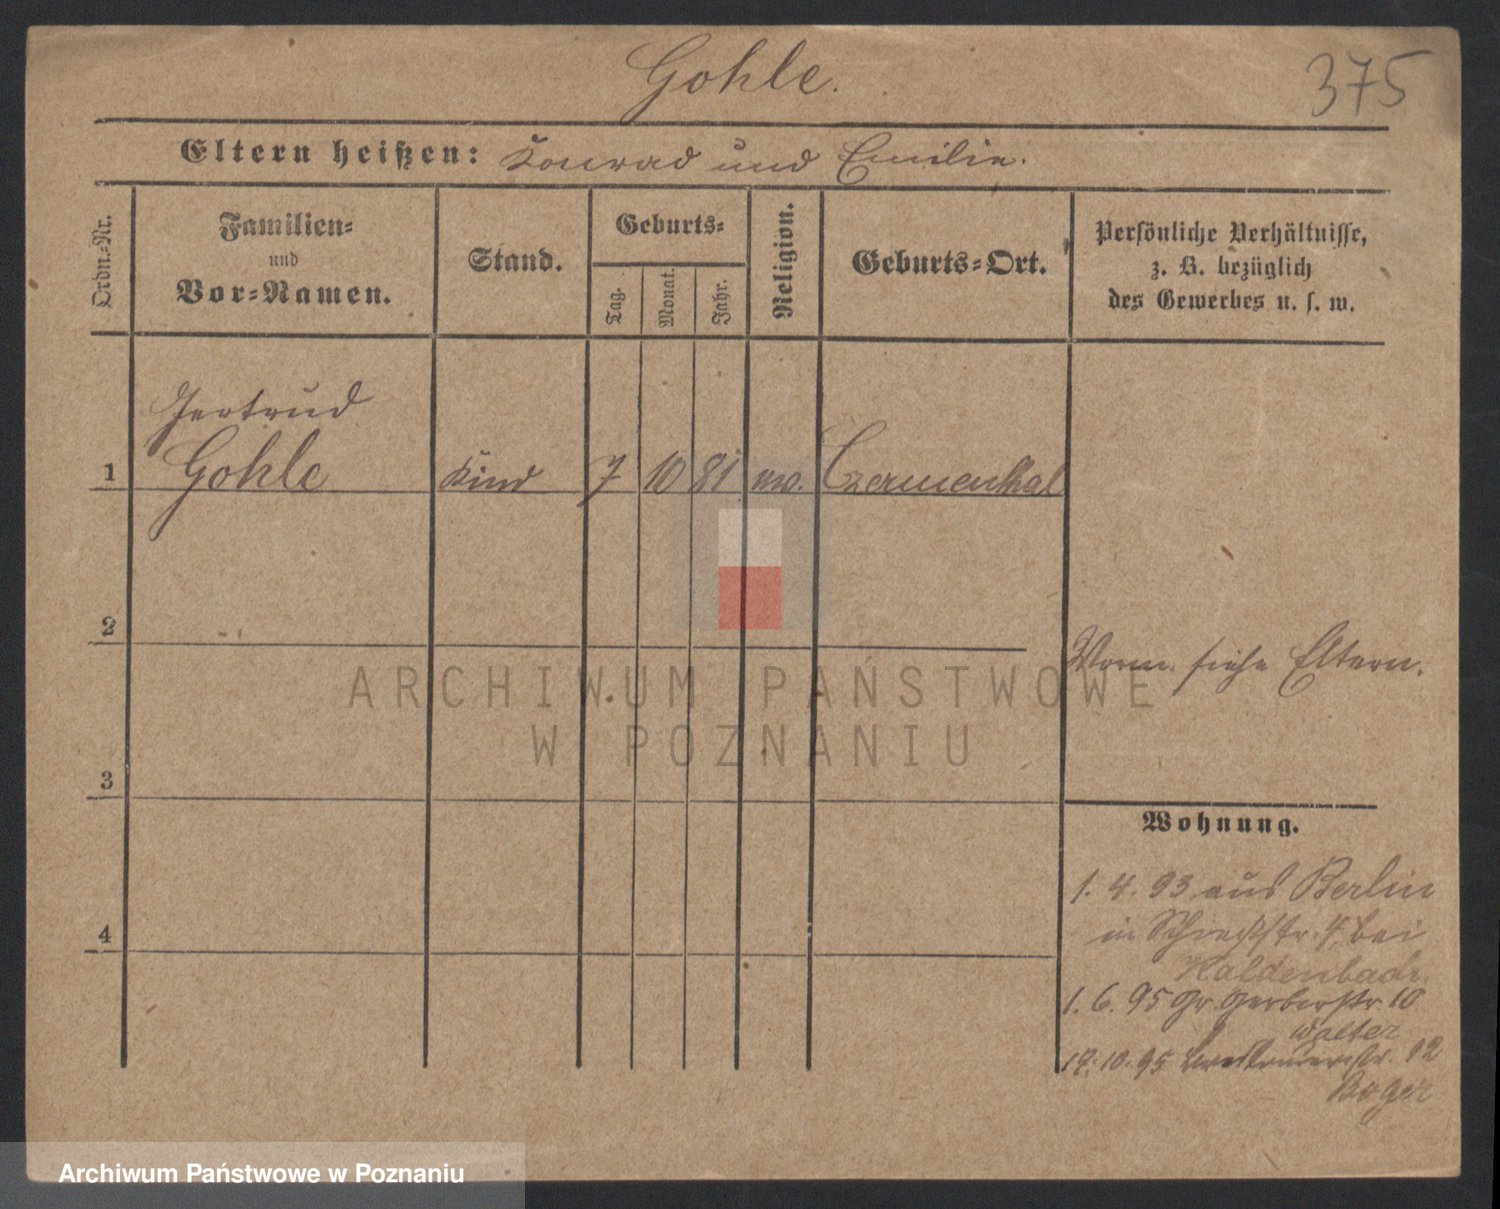 Gohle.
375
Eltern heißen: Konrad und Emilie.
Ordn.-Nr.
Familien-
und
Vor-Namen.
Stand.
Geburts-
Tag.
Monat.
Jahr.
Religion.
Geburts-Ort.
Persönliche Verhältnisse,
z. B. bezüglich
des Gewerbes u. s. w.
Gertrud
1 Gohle Kind 7 10 81 ev.
2
Vorm. siehe Eltern.
ARCHIWUM PAŃSTWOWE
W POZNANIU
3
Wohnung.
1. 4. 93 aus Berlin
4
in Schießstr. 4, bei
Kaldenbach
1. 6. 95 Gr. Gerberstr. 10
Walter
17. 10. 95 12
Boger
Archiwum Państwowe w Poznaniu